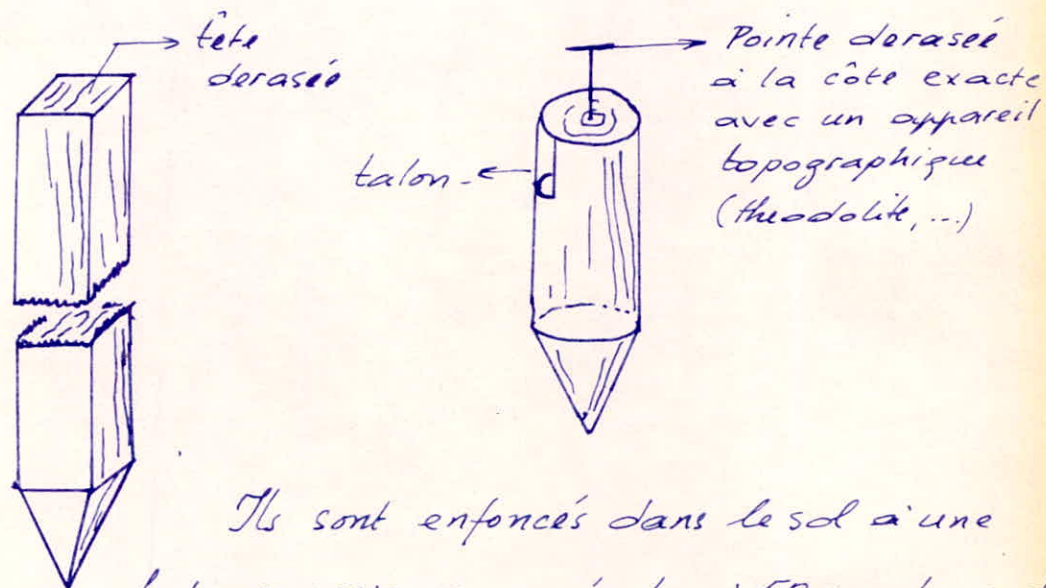 tête
derasée
Pointe derasée
à la côte exacte
avec un appareil
topographique
(theodolite,...)
talon
Ils sont enfoncés dans le sol à une